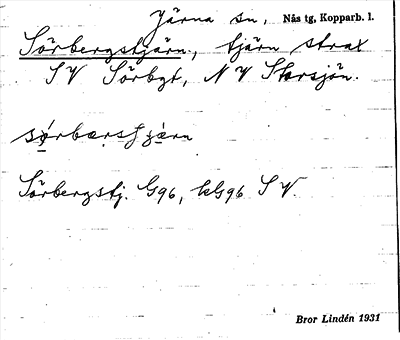 Järna sn, Nås tg, Kopparb. l.
Sörbergstjärn., tjärn strax
SV Sörbgt, NV Storsjön.
Sörbergstj. G96, kG96 SV.
Bror Lindén 1931